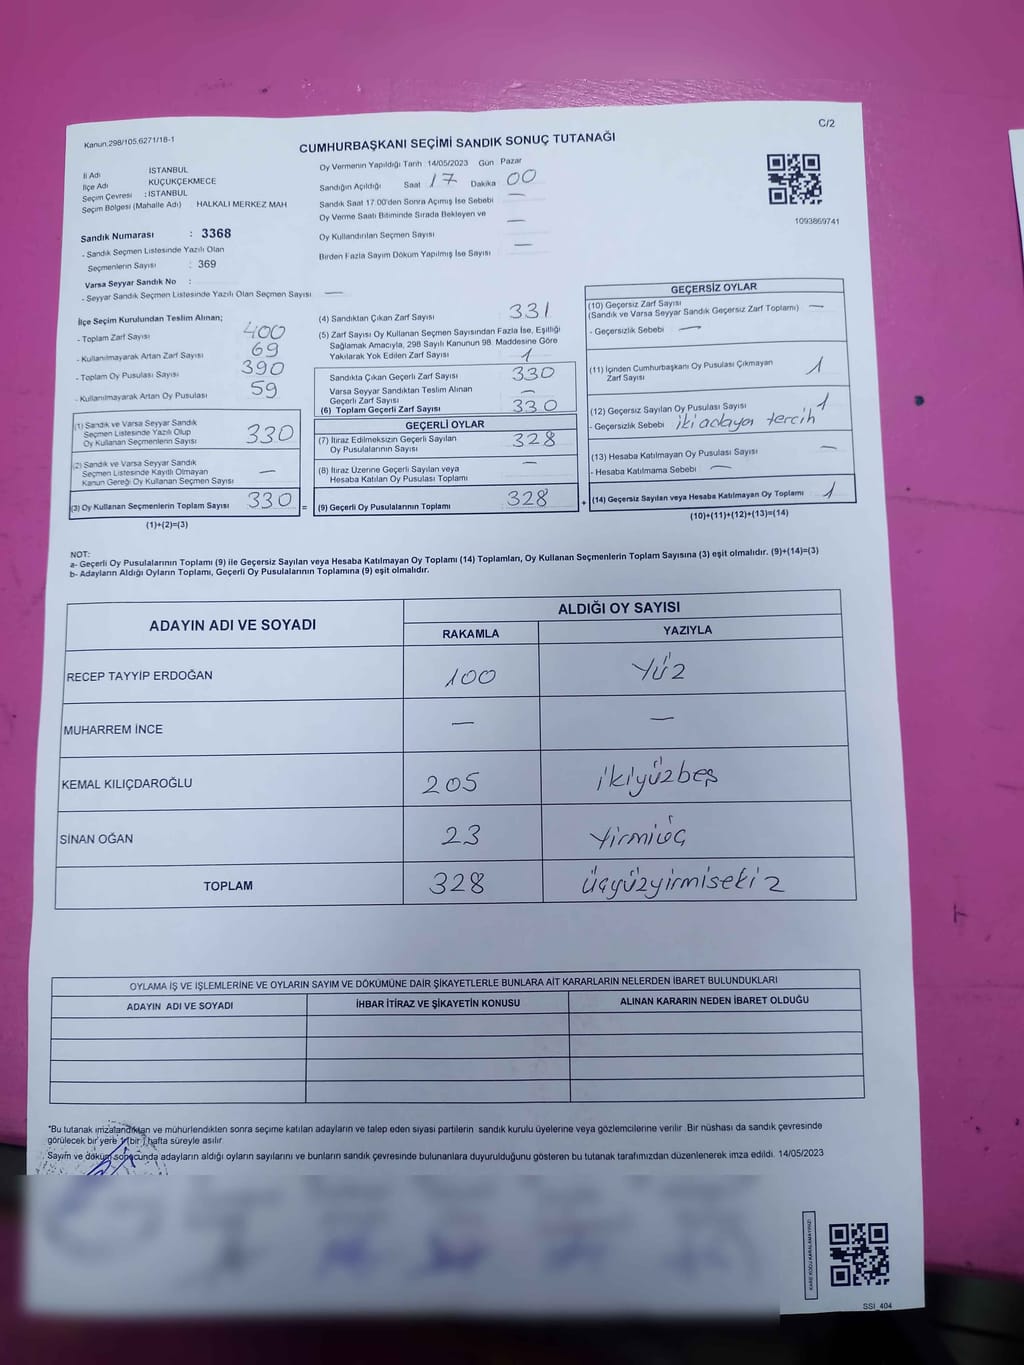 C/2
Kanun.298/105.6271/18-1
CUMHURBAŞKANI SEÇİMİ SANDIK SONUÇ TUTANAĞI
İl Adı İSTANBUL
İlçe Adı KÜÇÜKÇEKMECE
Seçim Çevresi : İSTANBUL
Seçim Bölgesi (Mahalle Adı) HALKALI MERKEZ MAH
Sandık Numarası : 3368
- Sandık Seçmen Listesinde Yazılı Olan
Seçmenlerin Sayısı : 369
Varsa Seyyar Sandık No :
- Seyyar Sandık Seçmen Listesinde Yazılı Olan Seçmen Sayısı —
Oy Vermenin Yapıldığı Tarih 14/05/2023 Gün Pazar
Sandığın Açıldığı Saat 17 Dakika 00
Sandık Saat 17.00'den Sonra Açımış İse Sebebi —
Oy Verme Saati Bitiminde Sırada Bekleyen ve
Oy Kullandırılan Seçmen Sayısı —
Birden Fazla Sayım Döküm Yapılmış İse Sayısı —
1093869741
İlçe Seçim Kurulundan Teslim Alınan;
- Toplam Zarf Sayısı 400
- Kullanılmayarak Artan Zarf Sayısı 69
- Toplam Oy Pusulası Sayısı 390
- Kullanılmayarak Artan Oy Pusulası 59
(1) Sandık ve Varsa Seyyar Sandık
Seçmen Listesinde Yazılı Olup
Oy Kullanan Seçmenlerin Sayısı 330
(2) Sandık ve Varsa Seyyar Sandık
Seçmen Listesinde Kayıtlı Olmayan
Kanun Gereği Oy Kullanan Seçmen Sayısı —
(3) Oy Kullanan Seçmenlerin Toplam Sayısı 330 =
(1)+(2)=(3)
(4) Sandıktan Çıkan Zarf Sayısı 331
(5) Zarf Sayısı Oy Kullanan Seçmen Sayısından Fazla İse, Eşitliği
Sağlamak Amacıyla, 298 Sayılı Kanunun 98. Maddesine Göre
Yakılarak Yok Edilen Zarf Sayısı 1
Sandıkta Çıkan Geçerli Zarf Sayısı 330
Varsa Seyyar Sandıktan Teslim Alınan
Geçerli Zarf Sayısı —
(6) Toplam Geçerli Zarf Sayısı 330
GEÇERLİ OYLAR
(7) İtiraz Edilmeksizin Geçerli Sayılan
Oy Pusulalarının Sayısı 328
(8) İtiraz Üzerine Geçerli Sayılan veya
Hesaba Katılan Oy Pusulası Toplamı —
(9) Geçerli Oy Pusulalarının Toplamı 328 +
GEÇERSİZ OYLAR
(10) Geçersiz Zarf Sayısı
(Sandık ve Varsa Seyyar Sandık Geçersiz Zarf Toplamı) —
- Geçersizlik Sebebi —
(11) İçinden Cumhurbaşkanı Oy Pusulası Çıkmayan
Zarf Sayısı 1
(12) Geçersiz Sayılan Oy Pusulası Sayısı 1
- Geçersizlik Sebebi iki adaya tercih
(13) Hesaba Katılmayan Oy Pusulası Sayısı —
- Hesaba Katılmama Sebebi —
(14) Geçersiz Sayılan veya Hesaba Katılmayan Oy Toplamı 1
(10)+(11)+(12)+(13)=(14)
NOT:
a- Geçerli Oy Pusulalarının Toplamı (9) ile Geçersiz Sayılan veya Hesaba Katılmayan Oy Toplamı (14) Toplamları, Oy Kullanan Seçmenlerin Toplam Sayısına (3) eşit olmalıdır. (9)+(14)=(3)
b- Adayların Aldığı Oyların Toplamı, Geçerli Oy Pusulalarının Toplamına (9) eşit olmalıdır.
ADAYIN ADI VE SOYADI ALDIĞI OY SAYISI
RAKAMLA YAZIYLA
RECEP TAYYİP ERDOĞAN 100 Yüz
MUHARREM İNCE — —
KEMAL KILIÇDAROĞLU 205 ikiyüzbeş
SİNAN OĞAN 23 Yirmiüç
TOPLAM 328 üçyüzyirmisekiz
OYLAMA İŞ VE İŞLEMLERİNE VE OYLARIN SAYIM VE DÖKÜMÜNE DAİR ŞİKAYETLERLE BUNLARA AİT KARARLARIN NELERDEN İBARET BULUNDUKLARI
ADAYIN ADI VE SOYADI İHBAR İTİRAZ VE ŞİKAYETİN KONUSU ALINAN KARARIN NEDEN İBARET OLDUĞU
"Bu tutanak imzalandıktan ve mühürlendikten sonra seçime katılan adayların ve talep eden siyasi partilerin sandık kurulu üyelerine veya gözlemcilerine verilir. Bir nüshası da sandık çevresinde
görülecek bir yere 1 (bir) hafta süreyle asılır.
Sayım ve döküm sonucunda adayların aldığı oyların sayılarını ve bunların sandık çevresinde bulunanlara duyurulduğunu gösteren bu tutanak tarafımızdan düzenlenerek imza edildi. 14/05/2023
KARE KODU KARALAMAYINIZ!
SSİ_404